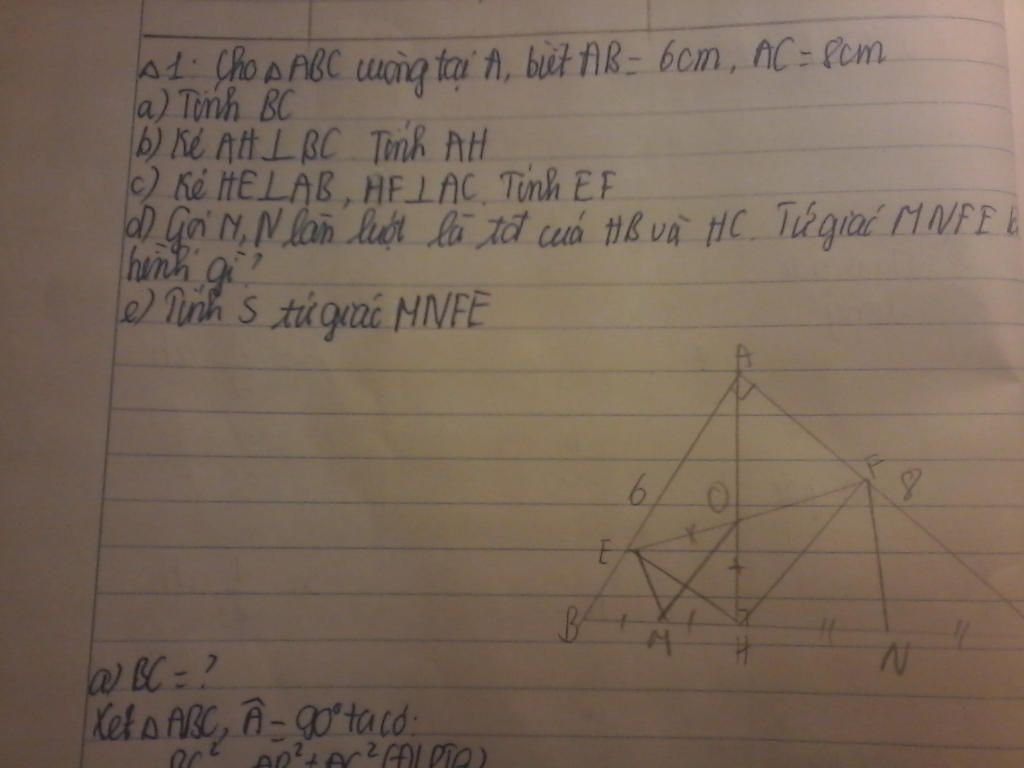 △1: Cho △ABC vuông tại A, biết AB = 6cm, AC = 8cm
a) Tính BC
b) Kẻ AH ⊥ BC. Tính AH
c) Kẻ HE ⊥ AB, HF ⊥ AC. Tính EF
d) Gọi M, N lần lượt là tđ của HB và HC. Tứ giác MNFE là
hình gì?
e) Tính S tứ giác MNFE
A
6
O
F
8
E
B
M
H
N
a) BC = ?
Xét △ABC, Â = 90° ta có:
BC² = AB² + AC² (ĐLPTG)